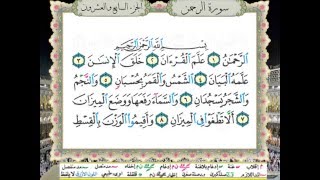 سورة الرحمن
الجزء السابع والعشرون
بِسْمِ اللَّهِ الرَّحْمَٰنِ الرَّحِيمِ
الرَّحْمَٰنُ ١ عَلَّمَ الْقُرْءَانَ ٢ خَلَقَ الْإِنسَٰنَ ٣
عَلَّمَهُ الْبَيَانَ ٤ الشَّمْسُ وَالْقَمَرُ بِحُسْبَانٍ ٥ وَالنَّجْمُ
وَالشَّجَرُ يَسْجُدَانِ ٦ وَالسَّمَاءَ رَفَعَهَا وَوَضَعَ الْمِيزَانَ
٧ أَلَّا تَطْغَوْا فِي الْمِيزَانِ ٨ وَأَقِيمُوا الْوَزْنَ بِالْقِسْطِ